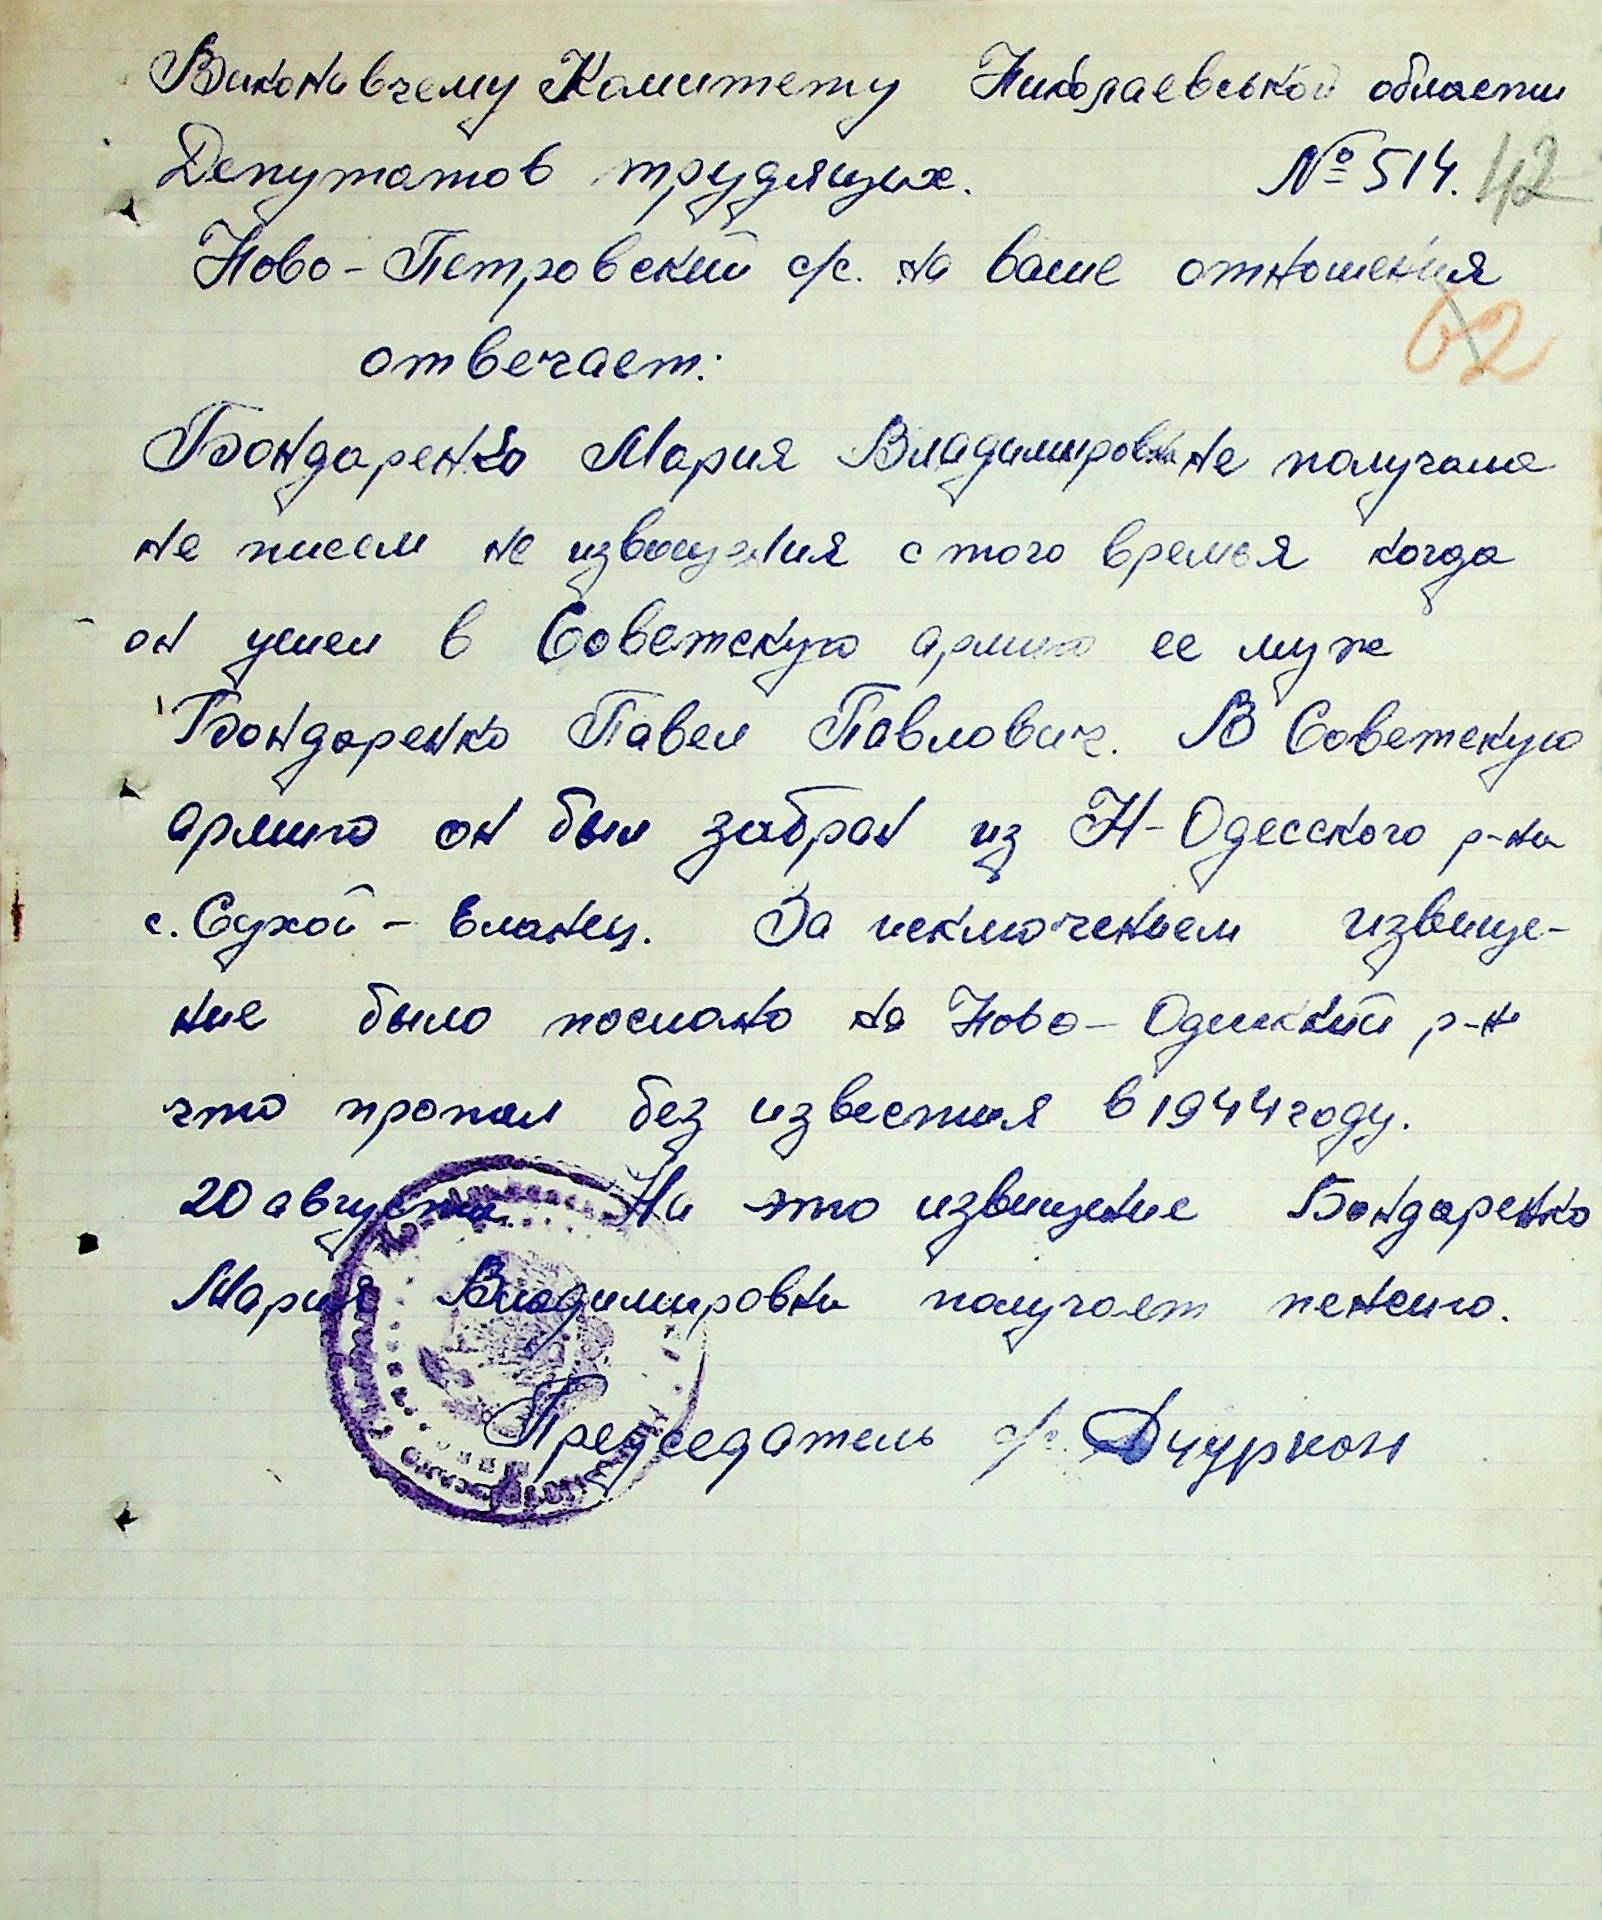 Виконавчему Комитету Николаевськой области
Депутатов трудящих. № 514. 42
Ново-Петровский с/с. на ваше отношения
62
отвечает:
Бондаренко Мария Владимировна не получала
не писем не извещения с того времья когда
он ушел в Советскую армию ее муж
Бондаренко Павел Павлович. В Советскую
армию он был забран из Н-Одесского р-на
с. Сухой-Еланец. За исключением извище-
ние было послано на Ново-Одесский р-н
что пропал без известия в 1944 году.
20 августа. На это извищение Бондаренко
Мария Владимировна получает пенсию.
Председатель с/с.